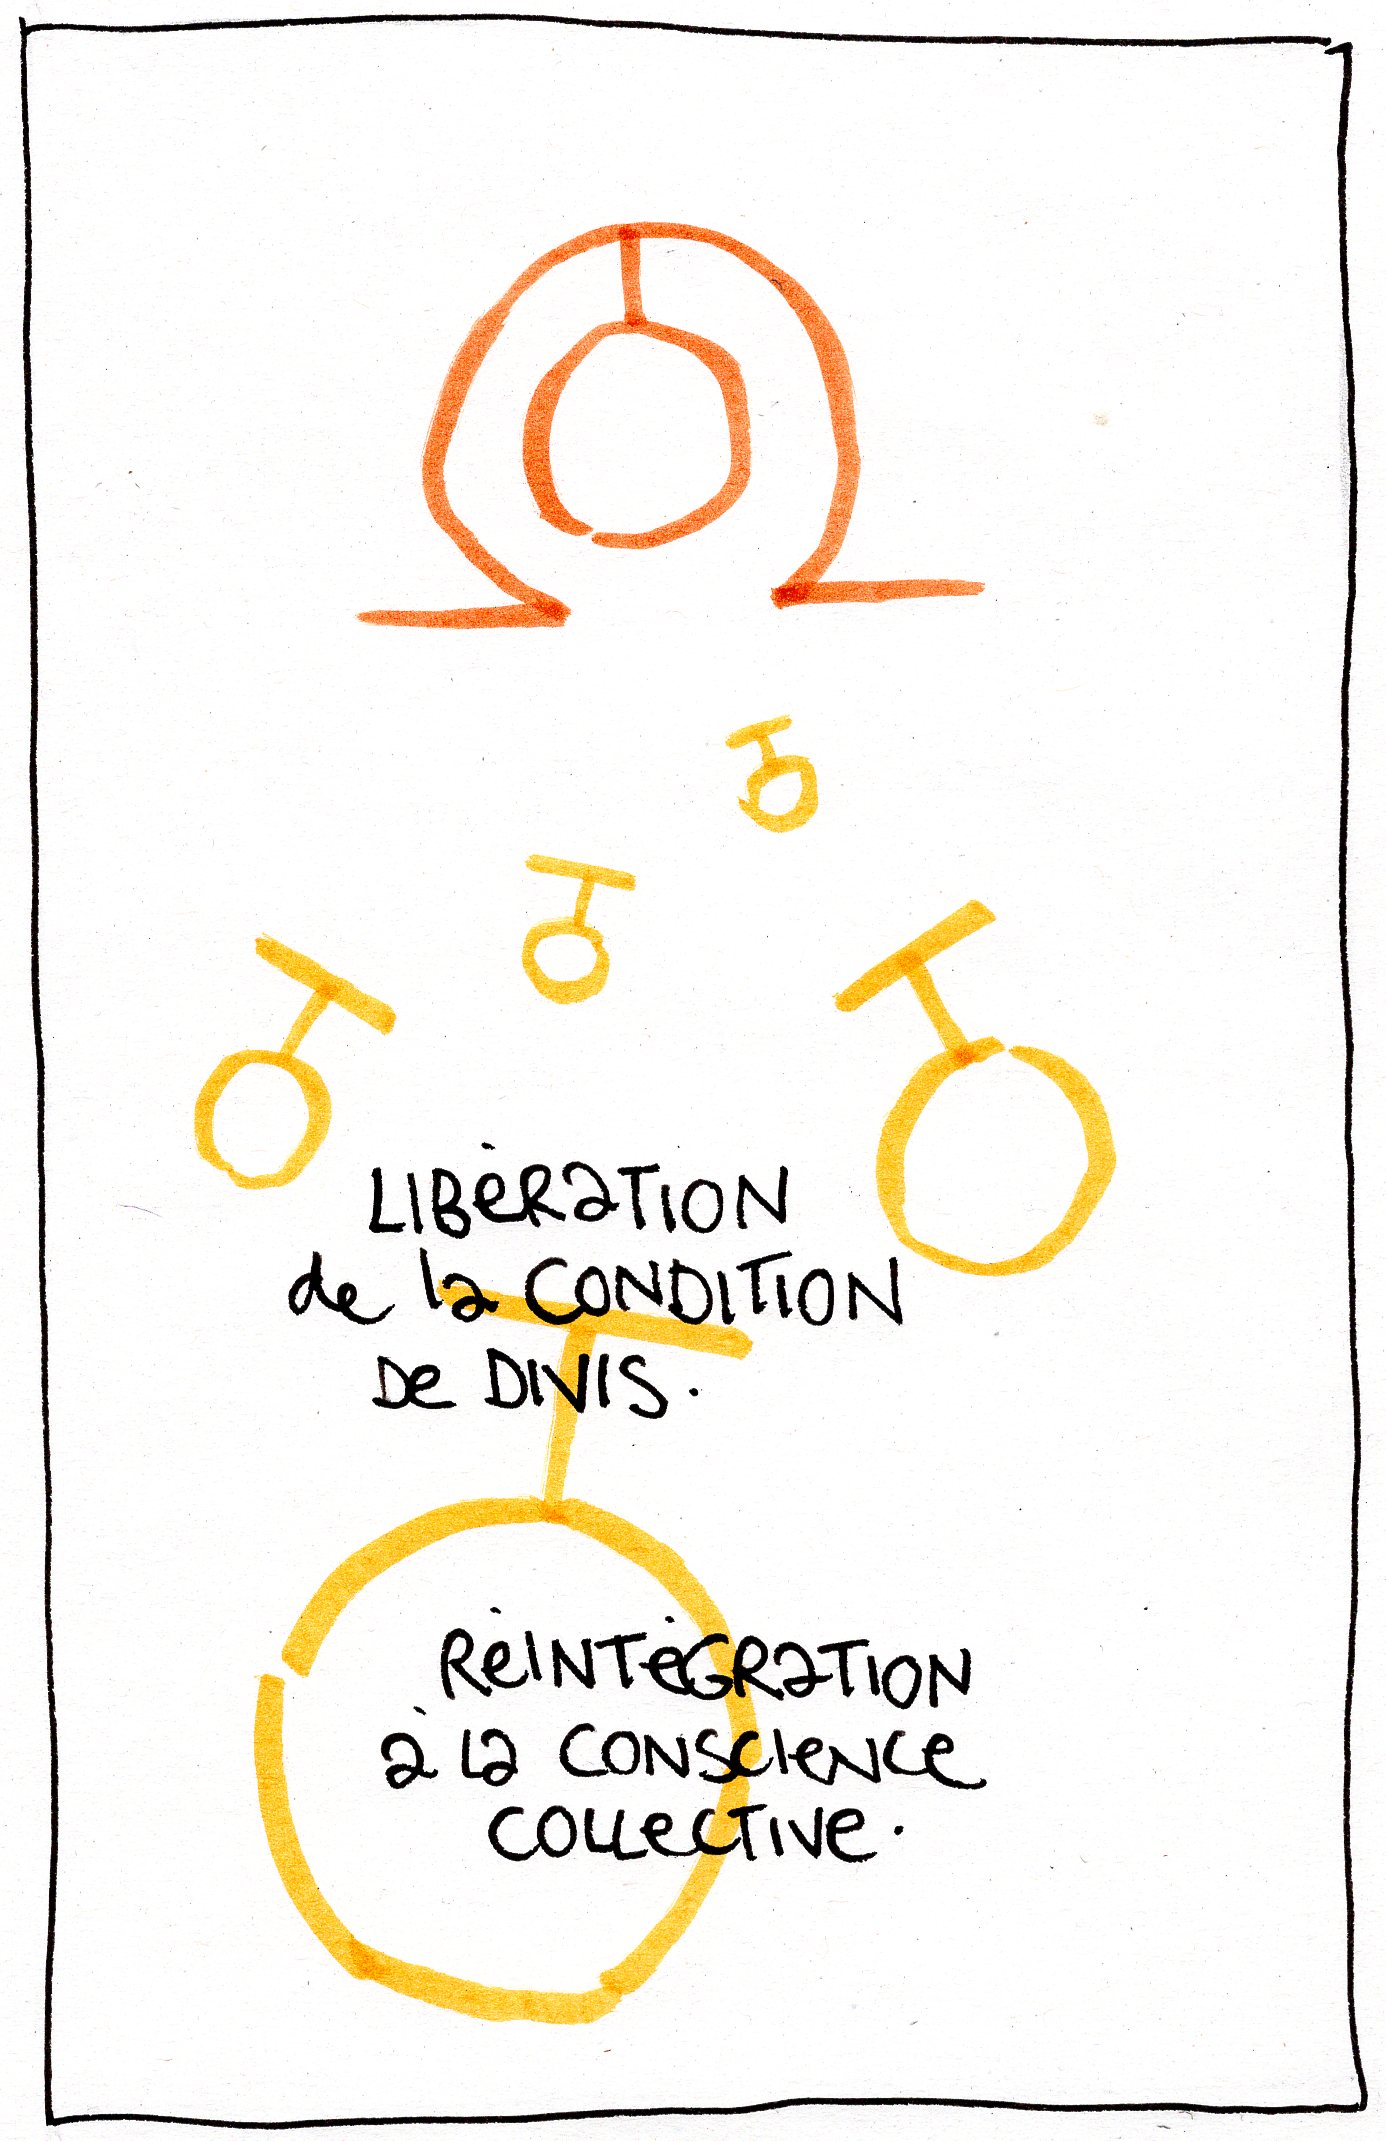 LIBÉRATION
de la CONDITION
DE DIVIS.
RÉINTÉGRATION
à la CONSCIENCE
COLLECTIVE.